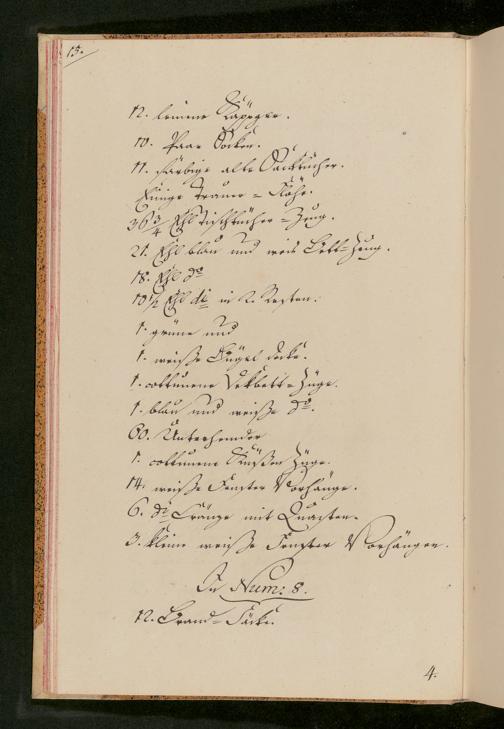 15.
12. leinene
10. Paar Socken.
11. färbige alte Sacktücher.
Einige Trauer=Flöhr.
36 3/4 Ehl Tischtücher=Zeug.
21. Ehl blau und weis Bett=Zeug.
18. Ehl do
10 1/2 Ehl do in 2. Resten.
1. grüne und
1. weiße Bügel decke.
1. cottunene Dekbett=Züge.
1. blau und weiße do.
60. Unterhemder
1. cottunene Küßen Züge.
14. weiße Fenster Vorhänge.
6. do Kränze mit Quasten.
3. kleine weiße Fenster Vorhängen.
In Num: 8.
12. Brand=Säcke.
4.